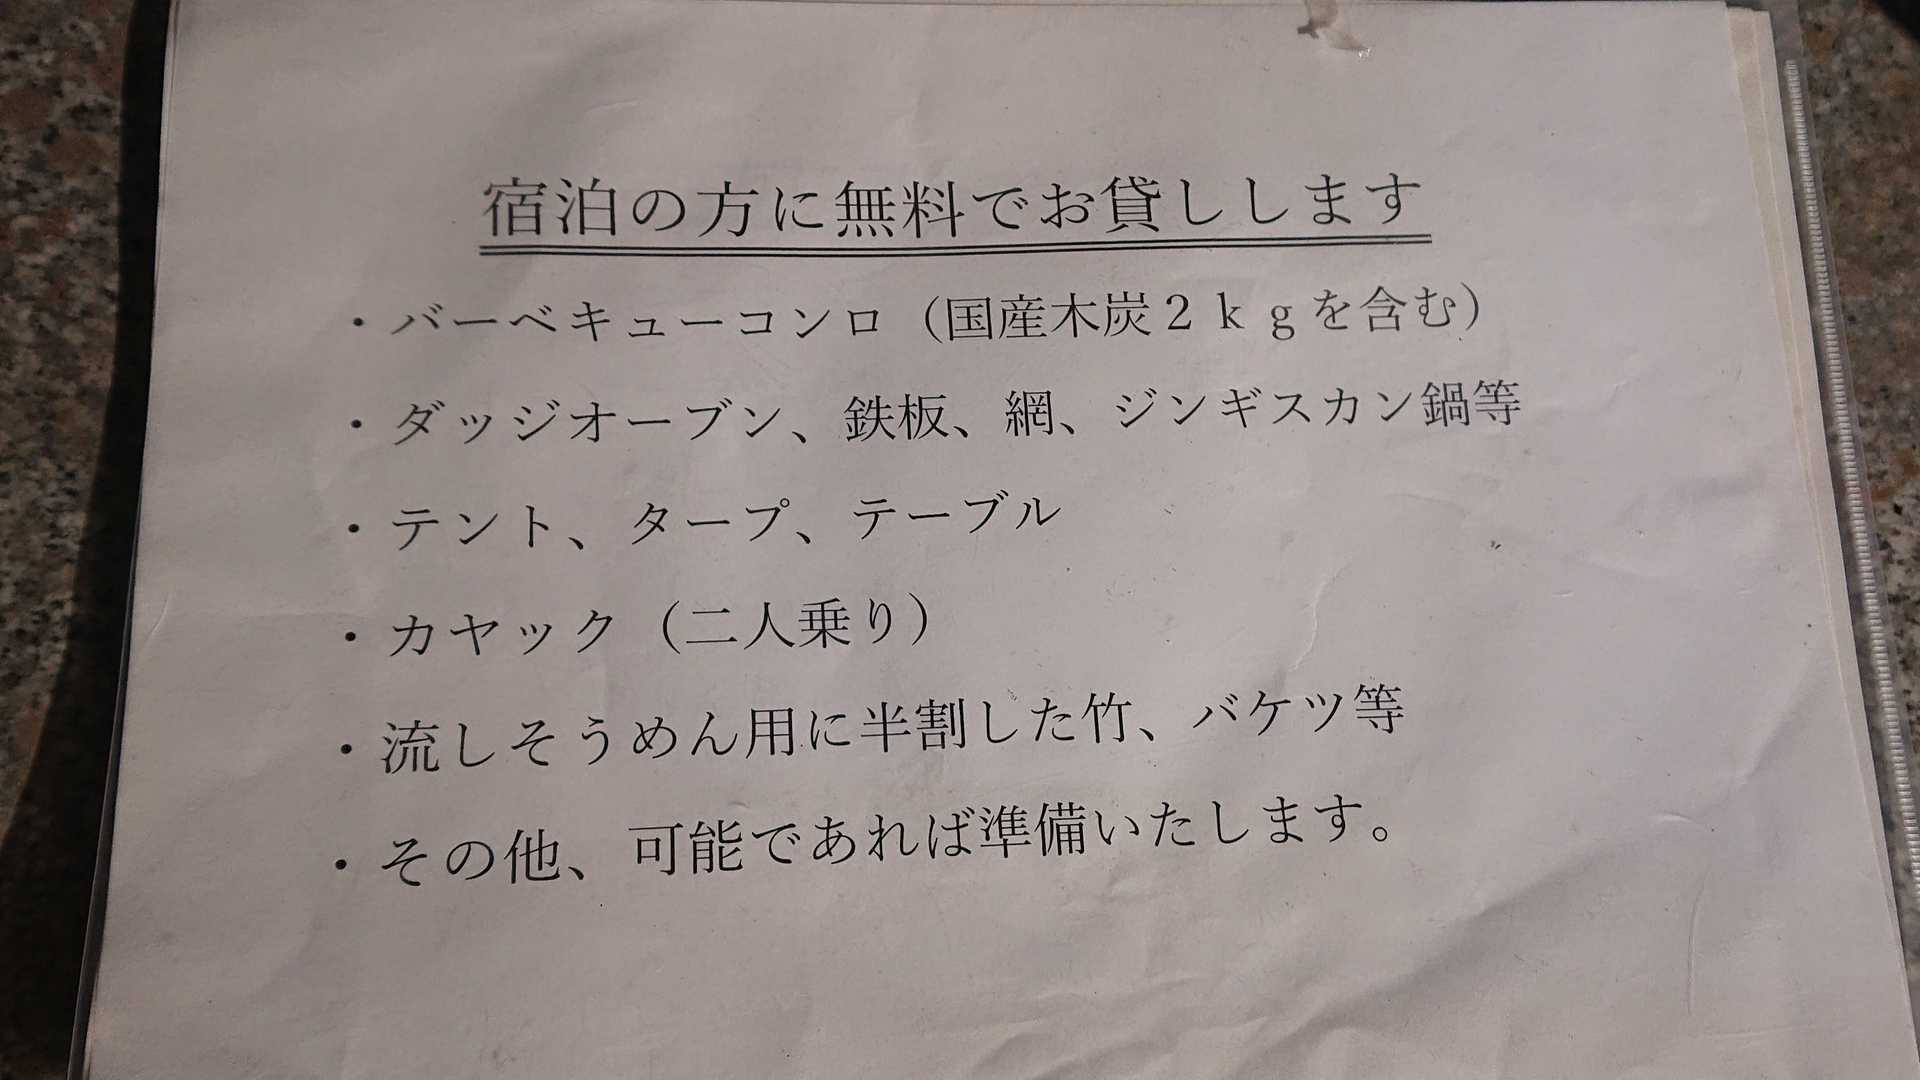 宿泊の方に無料でお貸しします
・バーベキューコンロ（国産木炭２ｋｇを含む）
・ダッジオーブン、鉄板、網、ジンギスカン鍋等
・テント、タープ、テーブル
・カヤック（二人乗り）
・流しそうめん用に半割した竹、バケツ等
・その他、可能であれば準備いたします。